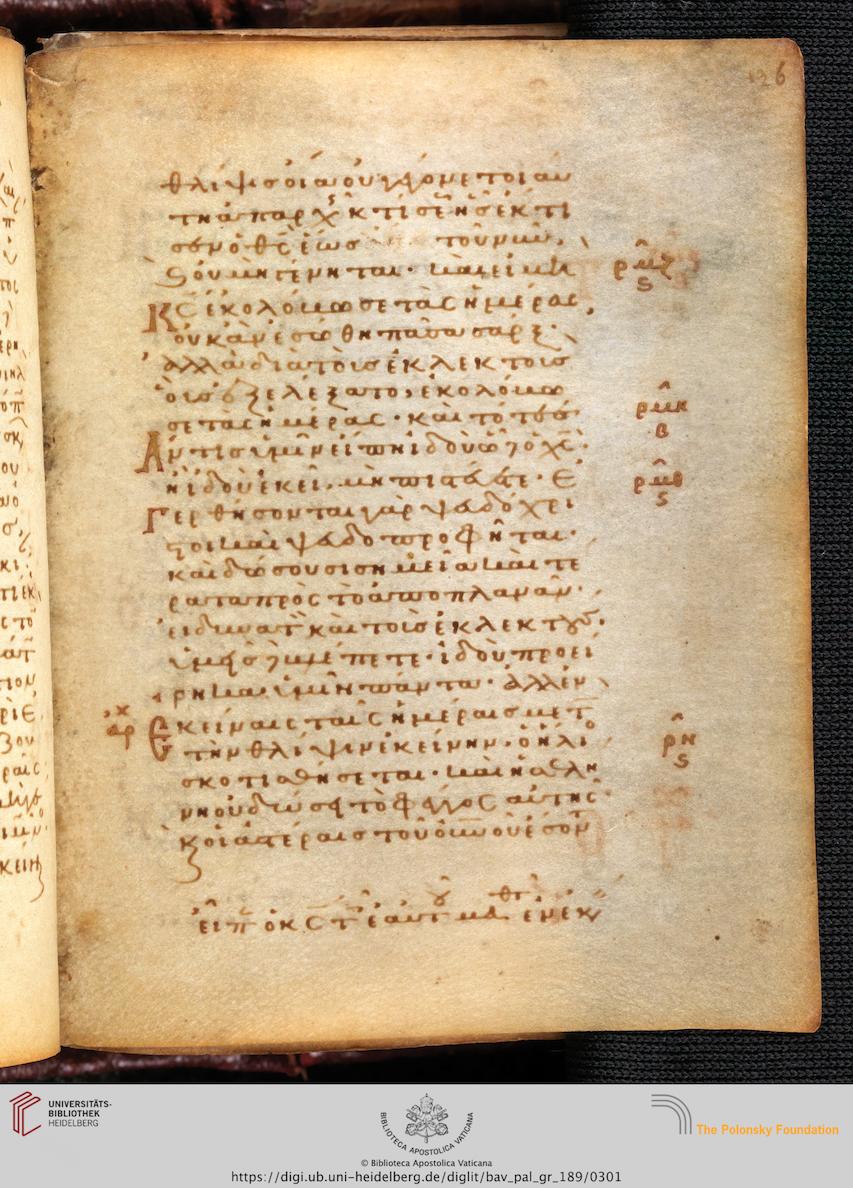 126
θλίψις οἵα οὐ γέγονε τοιαύ
τη ἀπαρχ κτίσε ἧς ἔκτι
σεν ὁ θς ἕως τοῦ νῦν,
ϛ οὐ μὴ γένηται· καὶ εἰ μὴ
ρμζ
ϛ
Κς ἐκολόβωσε τὰς ἡμέρας,
οὐκ ἂν ἐσώθη πᾶσα σάρξ·
ἀλλὰ διὰ τοὺς ἐκλεκτοὺς
οὓς ἐξελέξατο, ἐκολόβω
ρμη
β
σε τὰς ἡμέρας· καὶ τότε ἐάν
Ἄν τις ὑμῖν εἴπη ἰδοὺ ὧδε ὁ χς·
ἢ ἰδοὺ ἐκεῖ, μὴ πιστεύετε· Ἐ
ρμθ
ϛ
Γερθήσονται γὰρ ψευδόχρι
στοι καὶ ψευδοπροφῆται·
καὶ δώσουσι σημεῖα καὶ τέ
ρατα πρὸς τὸ ἀποπλανᾶν·
εἰ δυνατ καὶ τοὺς ἐκλεκτούς·
ὑμεῖς δὲ βλέπετε· ἰδοὺ προεί
ρηκα ὑμῖν πάντα· ἀλλ' ἐν
αρχ
Ἐκείναις ταῖς ἡμέραις μετ
ρν
ϛ
τὴν θλίψιν ἐκείνην· ὁ ἥλιο
σκοτισθήσεται· καὶ ἡ σελή
νη οὐ δώσει τὸ φέγγος αὐτῆς·
κ οἱ ἀστέρες τοῦ οὐνοῦ ἔσον
εἶπ ὁ κς τ ἑαυτ μαθτ ἐν ἐκ
UNIVERSITÄTS-
BIBLIOTHEK
HEIDELBERG
BIBLIOTECA APOSTOLICA VATICANA
The Polonsky Foundation
© Biblioteca Apostolica Vaticana
https://digi.ub.uni-heidelberg.de/diglit/bav_pal_gr_189/0301